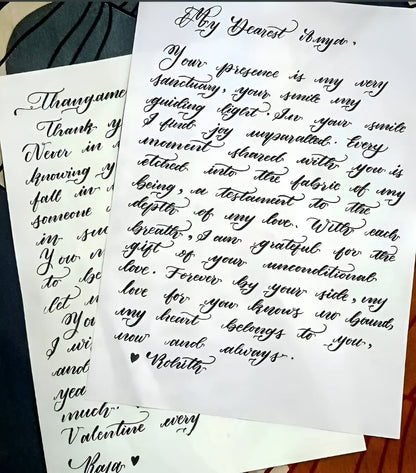 My Dearest Anya,
Your presence is my very
sanctuary, your smile my
guiding light. In your smile
I find joy unparalled. Every
moment shared with you is
etched into the fabric of my
being, a testament to the
depth of my love. With each
breath, I am grateful for the
gift of your unconditional
love. Forever by your side, my
love for you knows no bound,
my heart belongs to you,
now and always.
♥ Rohith
Thangame
Thank y
Never in
knowing y
fall in
someone
in su
You
to be
let
You
I wi
and
yea
much.
Valentine every
Raja ♥